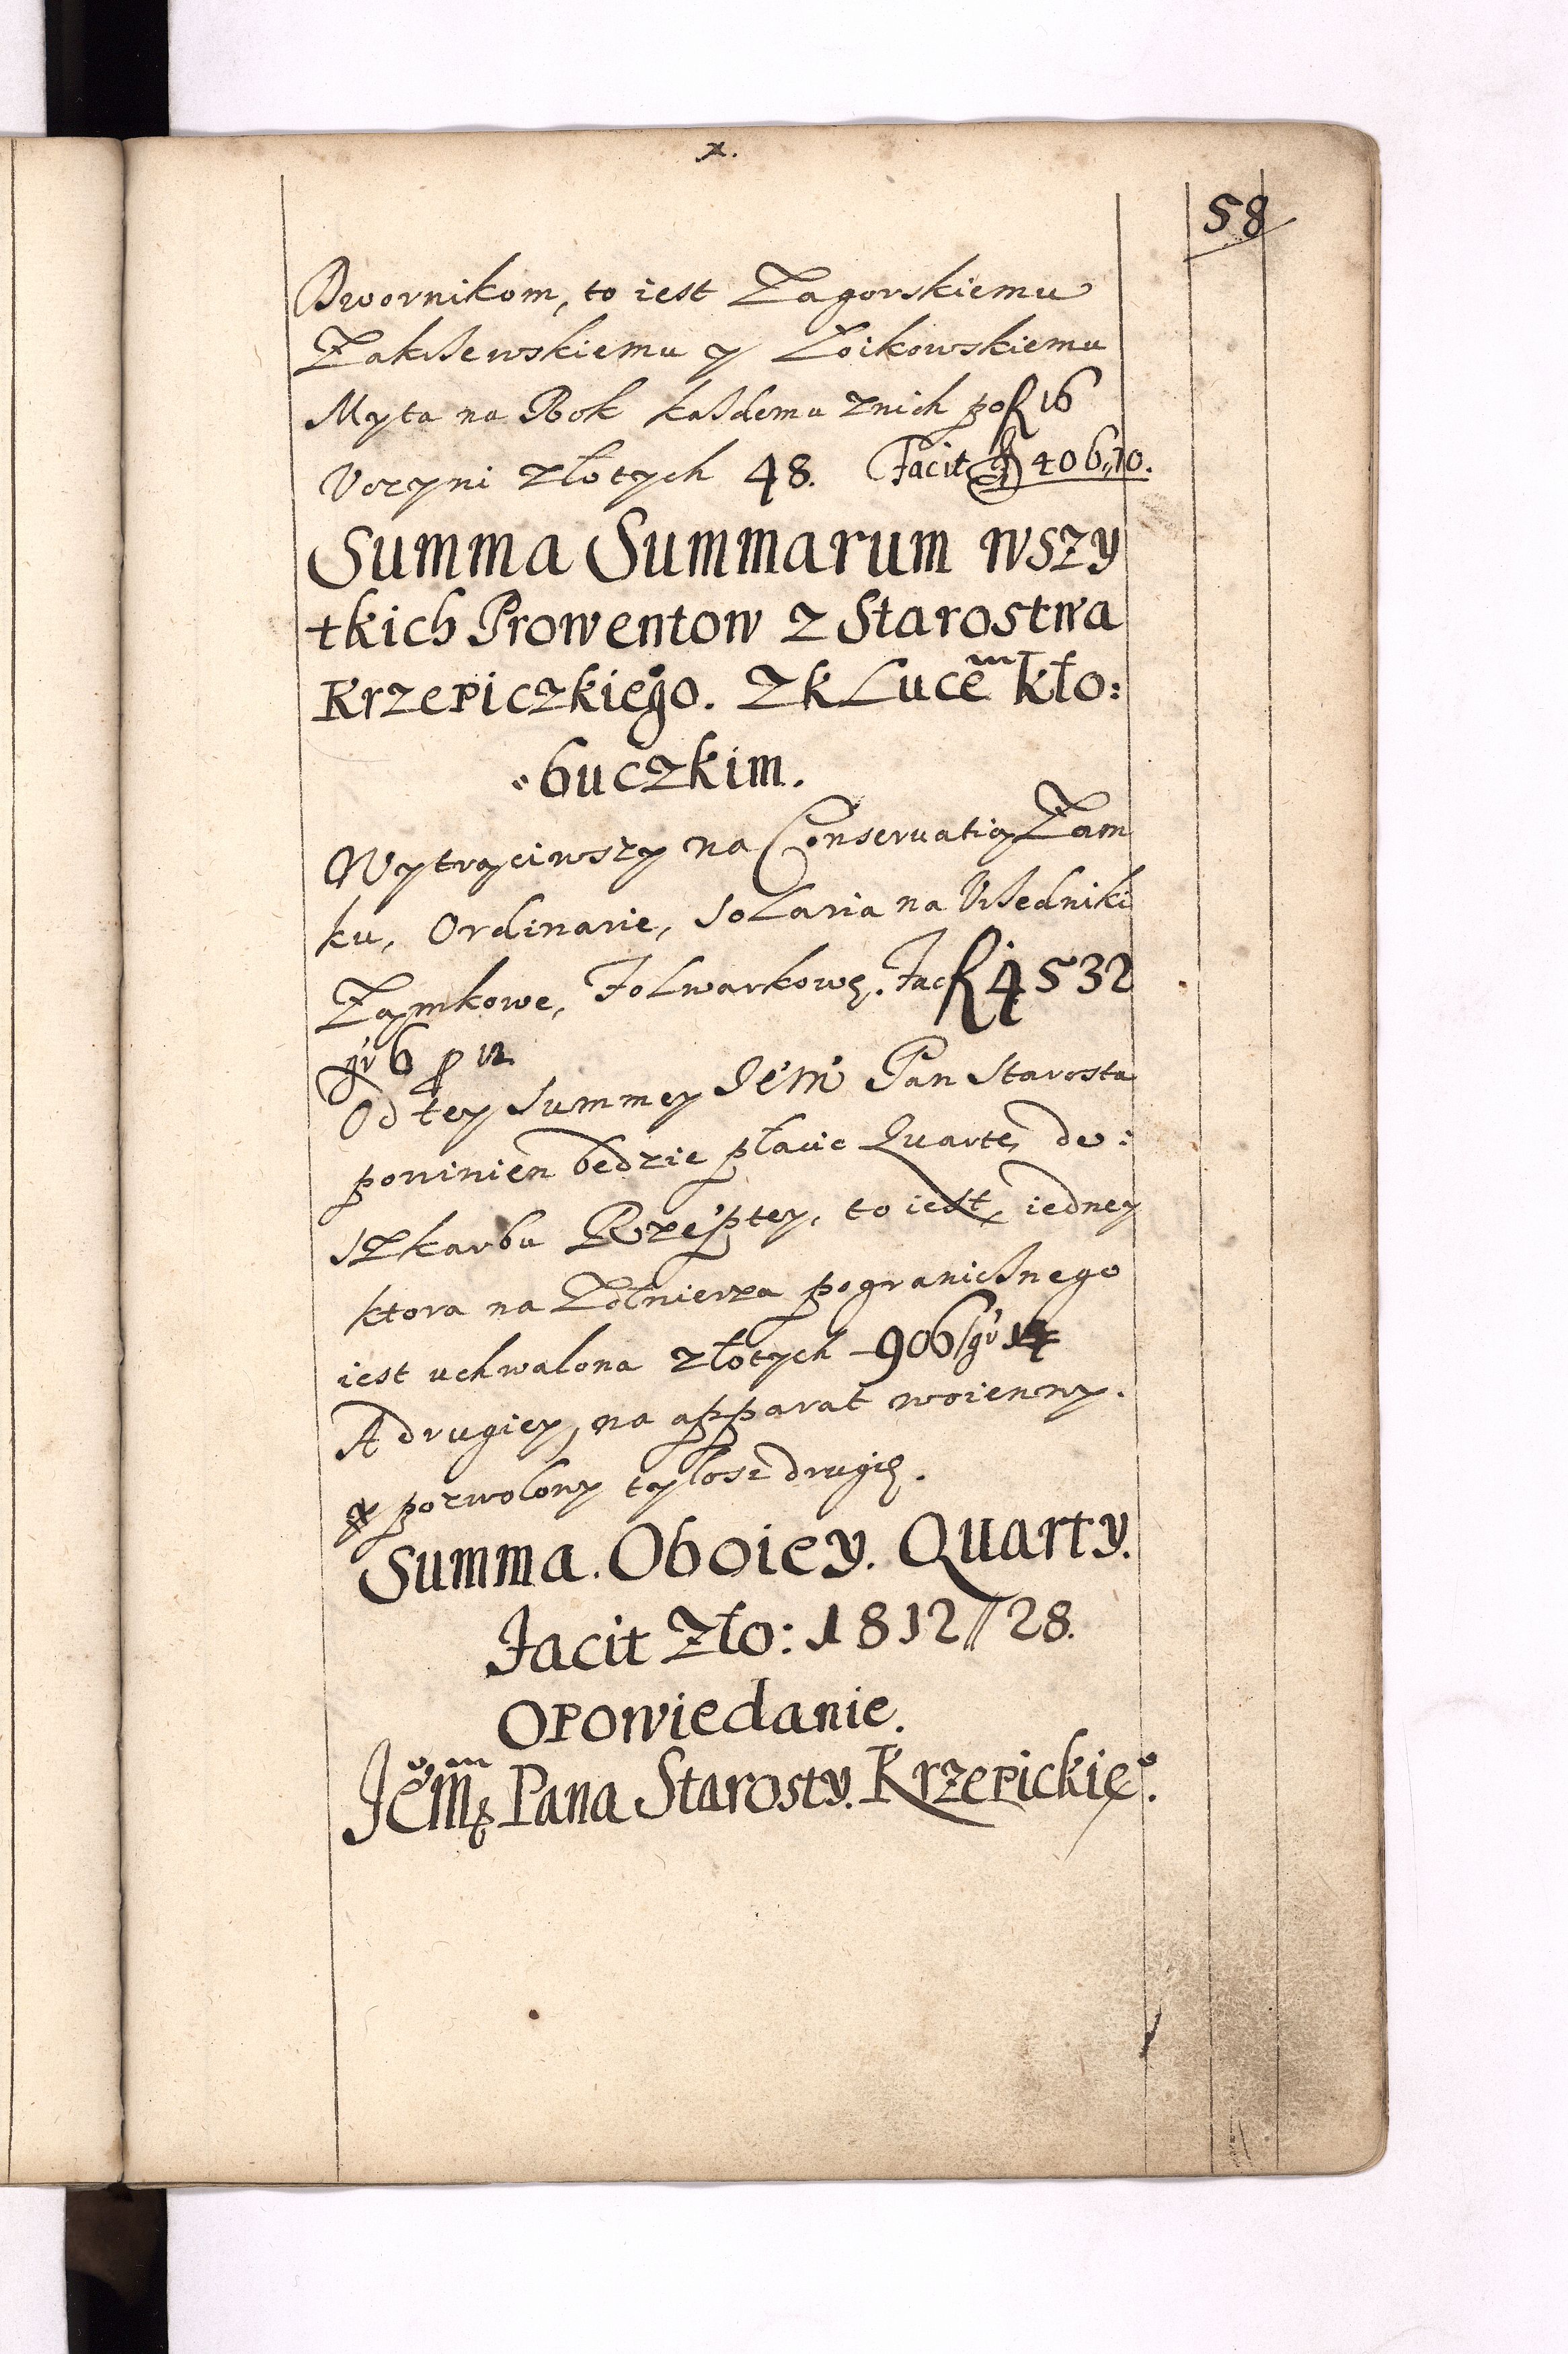 x.
58
Dwornikom, to iest Zagorskiemu
Zakrzewskiemu y Zoikowskiemu
Myta na Rok każdemu znich po fl 16
Vczyni złotych 48. Facit fl 406,,10.
Summa Summarum wszy
tkich Prowentow z Starostwa
Krzepiczkiego. Z kLucem kło:
buczkim.
Wytrąciwszy na Conseruatią Zam
ku, Ordinarie, solaria na Vrzedniki
Zamkowe, Folwarkowe. Fac fl 4532
gr 6 p 12
Od tey summey Jem Pan Starosta
powinien bedzie płacic Quartę do:
szkarbu Rzeptey, to iest, iedney
ktora na Zołnierza pogranicznego
iest uchwalona złotych 906 / gr 14
A drugiey, na apparat woienny.
pozwolony tylosz drugie.
Summa. Oboiey. Quarty.
Facit Zło: 1812 // 28.
Opowiedanie.
Jem Pana Starosty. Krzepickie.